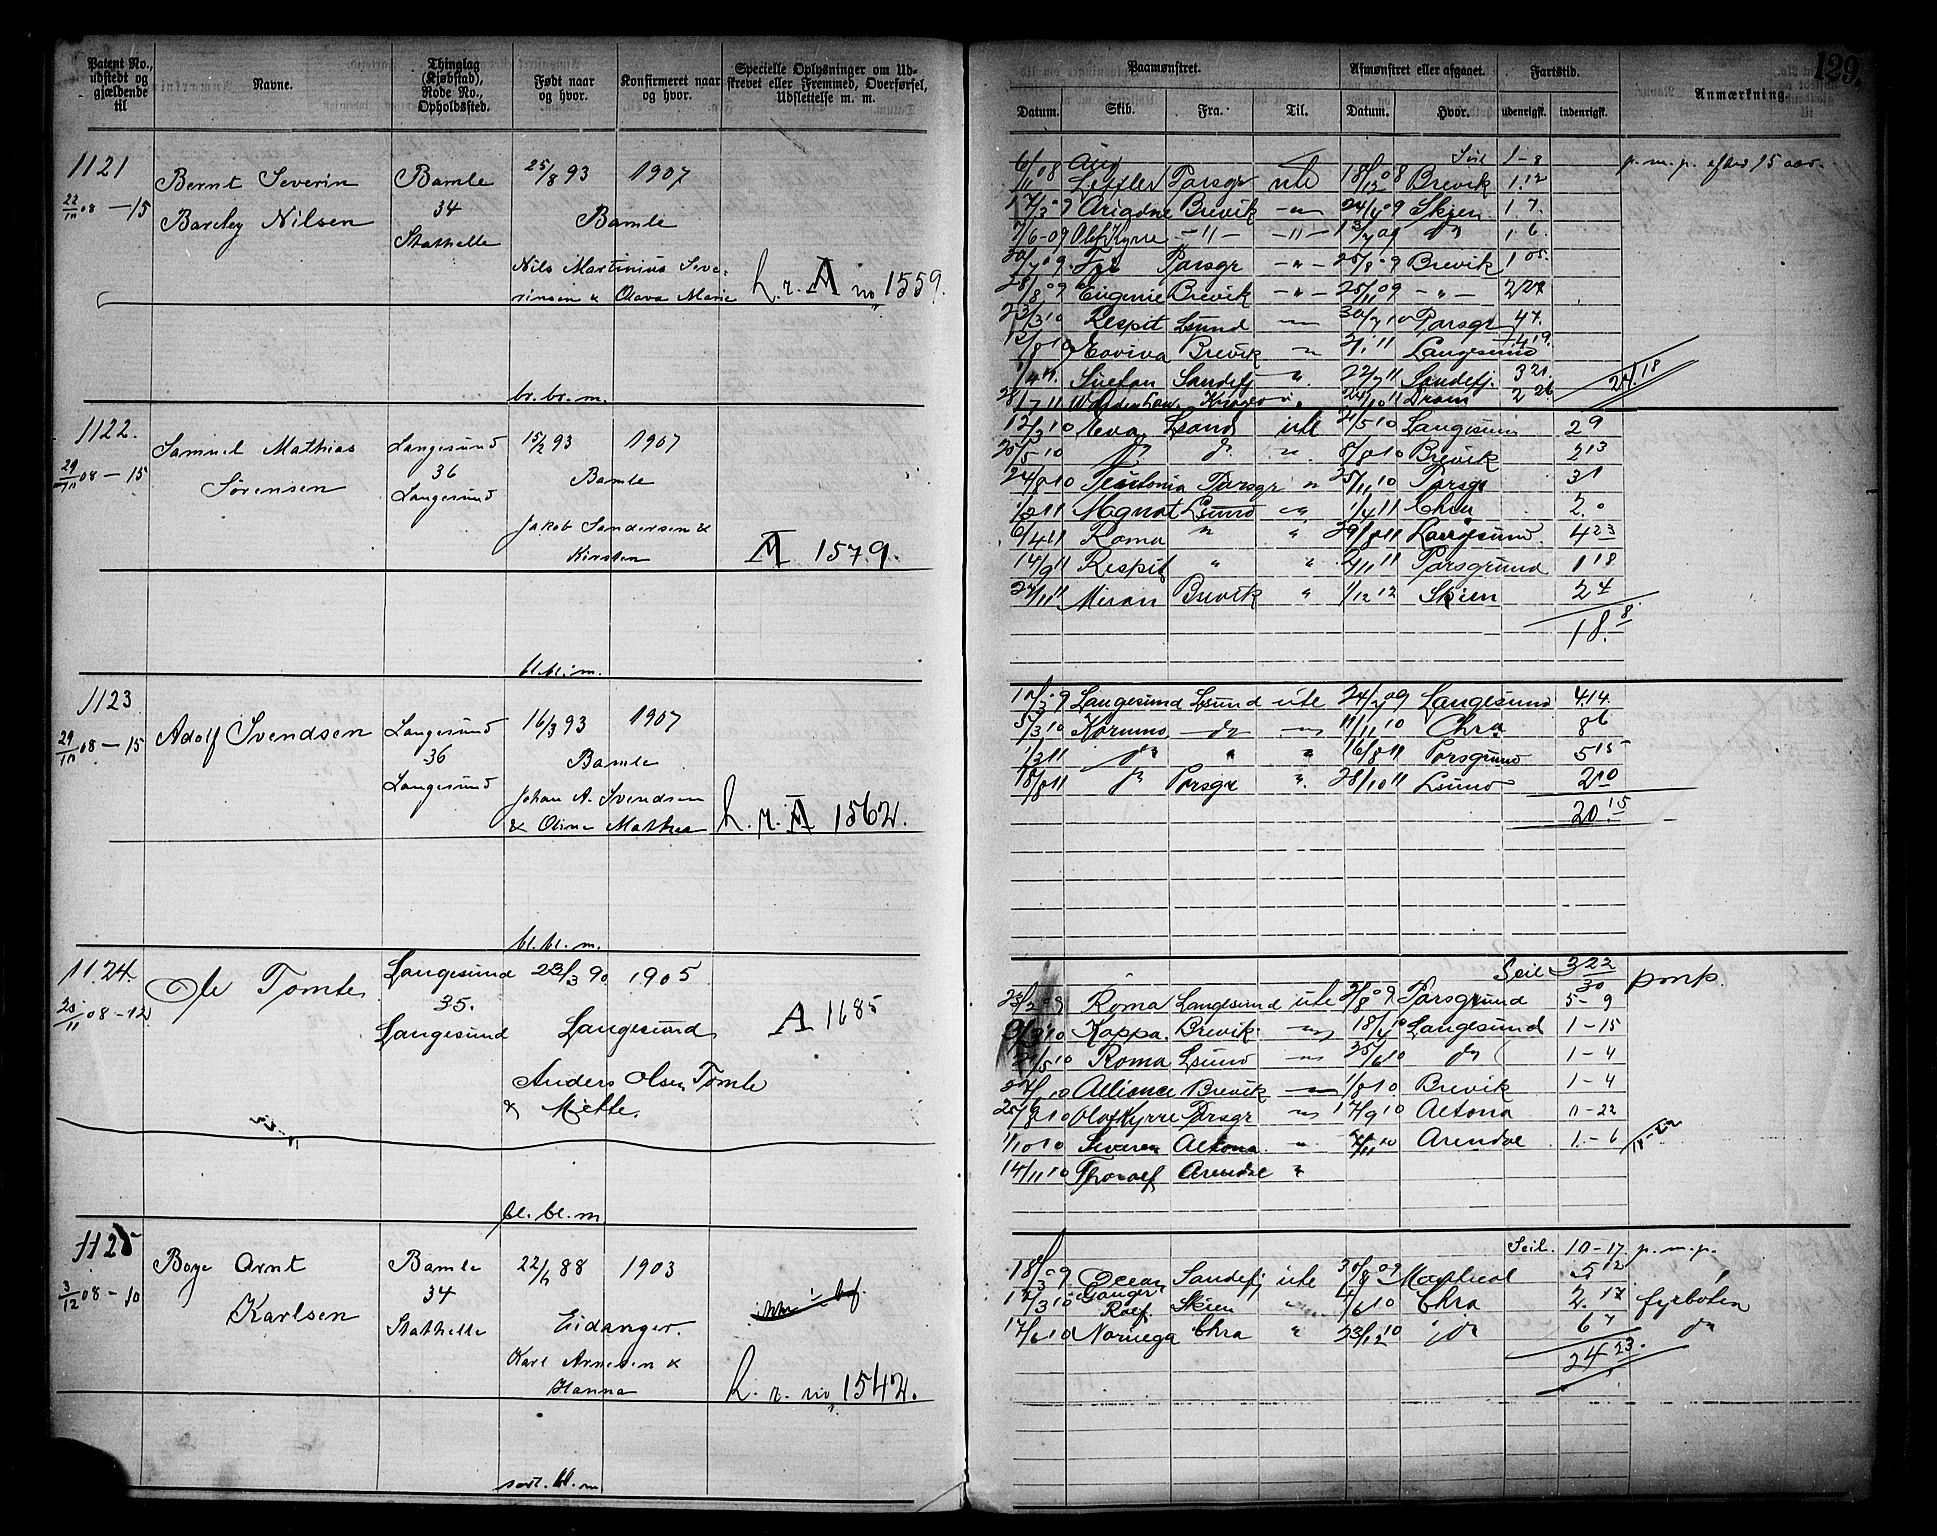 129.
Patent No., udstedt og gjældende til
Navne.
Thinglag (Kjøbstad), Rode No., Opholdssted.
Født naar og hvor.
Konfirmeret naar og hvor.
Specielle Oplysninger om Udskrevet eller Fremmed, Overførsel, Udslettelse m. m.
Paamønstret.
Afmønstret eller afgaaet.
Fartstid.
Anmærkning.
Datum. Skib. Fra: Til. Datum. Hvor. udenrigsk. indenrigsk.
1121
22/11 08 – 15
Bernt Severin
Barcley Nilsen
Bamle
34
Stathelle
25/8 93
1907
Bamle
Nils Martinius Seve-
rinsen & Olava Marie
h. r. A no 1559.
br. br. m.
Seil 1-8 p. m. p. efter 15 aar.
6/11 08 Aug Leffler Porsgr ute 18/12 08 Brevik 1.12
17/3 09 Ariadne Brevik -"- 24/4 09 Skien 1.7.
7/6-09 Olaf Kyrre -"- -"- 13/7 09 do 1 6.
Porsgr -"- 25/8 09 Brevik 1 05
28/8 09 Eugenie Brevik -"- 25/11 09 -"- 2 27
23/3 10 Respit Lsund 30/7 10 Porsgr 47.
Brevik Langesund
Sandefj 22/7 11 Sandefj. 3 21.
28/7 11 24/10 11 Dram 2 26
24.18
1122.
29/11 08 – 15
Samuel Mathias
Sørensen
Langesund
36
Langesund
15/2 93
1907
Bamle
Jakob Sandersen &
Kirsten
A 1579.
bl. bl. m.
12/3 10 Neva Lsund ute 2/5 10 Langesund 29
20/5 10 do do " 8/8 10 Brevik 2 13
24/8 10 Teutonia Porsgr " 25/11 10 Porsgr 31
Magnat Lsund " 1/4 11 Chra 2.0
9/4 11 Roma " " 29/8 11 Langesund. 4 23
14/9 11 Respit " " Porsgrund 1 18
Brevik " 1/12 12 Skien 24
18. 8.
1123
29/11 08 – 15
Adolf Svendsen
Langesund
36
Langesund
16/3 93
1907
Bamle
Johan A. Svendsen
& Oline Mathea
h. r. A 1562.
bl. bl. m.
10/3 09 Langesund Lsund ute 24/7 09 Langesund 4.14.
5/3 10 do 11/11 10 Chra 86
1/3 11 do " " 16/8 11 Porsgrund 5 15
18/8 11 do Porsgr " 28/10 11 Lsund 2 10
20. 15
1124.
25/11 08 – 12
Ole Tomte
Langesund
35.
Langesund
23/3 90
1905
Langesund
Anders Olsen Tomte
& Mette.
A 1685
bl. bl. m.
Seil 3 22/30 pmp.
23/2 09 Roma Langesund ute 2/8 09 Porsgrund 5-9
Kappa. Brevik 18/4 10 Langesund 1-15
Roma Lsund 25/6 10 do 1-4
Alliance Brevik 1/8 10 Brevik 1-4
25/8 10 Olaf Kyrre Porsgr 17/9 10 Altona 0-22
1/10 10 Altona " Arendal 1.-6
14/11 10 Thoralf Arendal "
1125
3/12 08 – 10
Boye Arnt
Karlsen
Bamle
34
Stathelle
22/6 88
1903
Eidanger.
Karl Arnesen &
Hanna
h. r. no 1542.
sort. bl. m.
Seil. 10-17. p. m. p.
18/3 09. Ocean Sandefj ute 30/8 09 Montreal 5 12
12/3 10 Ganger Rolf. Skien " 4/6 10 Chra 2. 17 fyrbøter
17/6 10 Noruega Chra " 23/12 10 do 6 7 do
24 23.